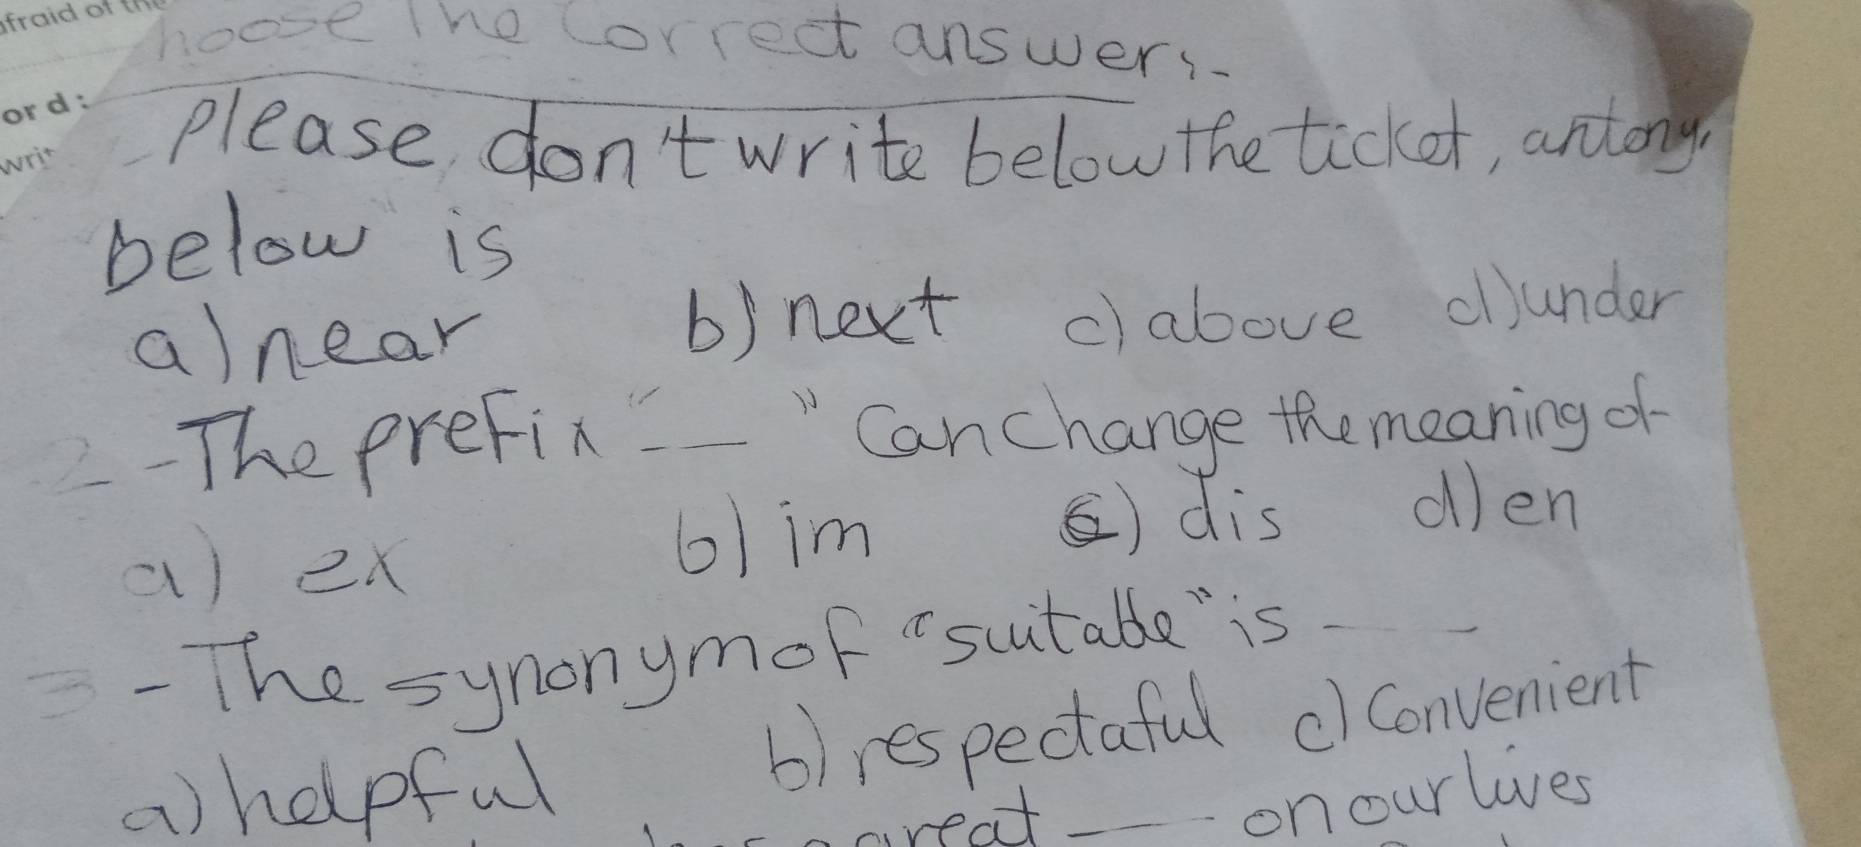 afraid of the
hoose The Correct answer:-
or d:
writ
- please, don't write below the ticket, antony
below is
a) near b) next c) above d) under
2 - The prefix "__" Can change the meaning of
a) ex b) im c) dis d) en
3 - The synonym of "suitable" is ----
a) helpful b) respectaful c) Convenient
great ---- on our lives